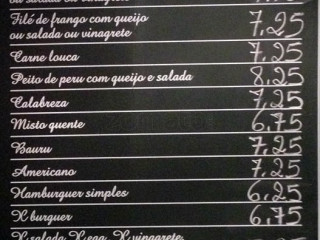 ou salada ou vinagrete
Filé de frango com queijo
ou salada ou vinagrete 7,25
Carne louca 7,25
Peito de peru com queijo e salada 8,25
Calabreza 7,25
Misto quente 6,75
Bauru 7,25
Americano 7,25
Hamburguer simples 6,25
X burguer 6,75
X salada, X egg, X vinagrete,